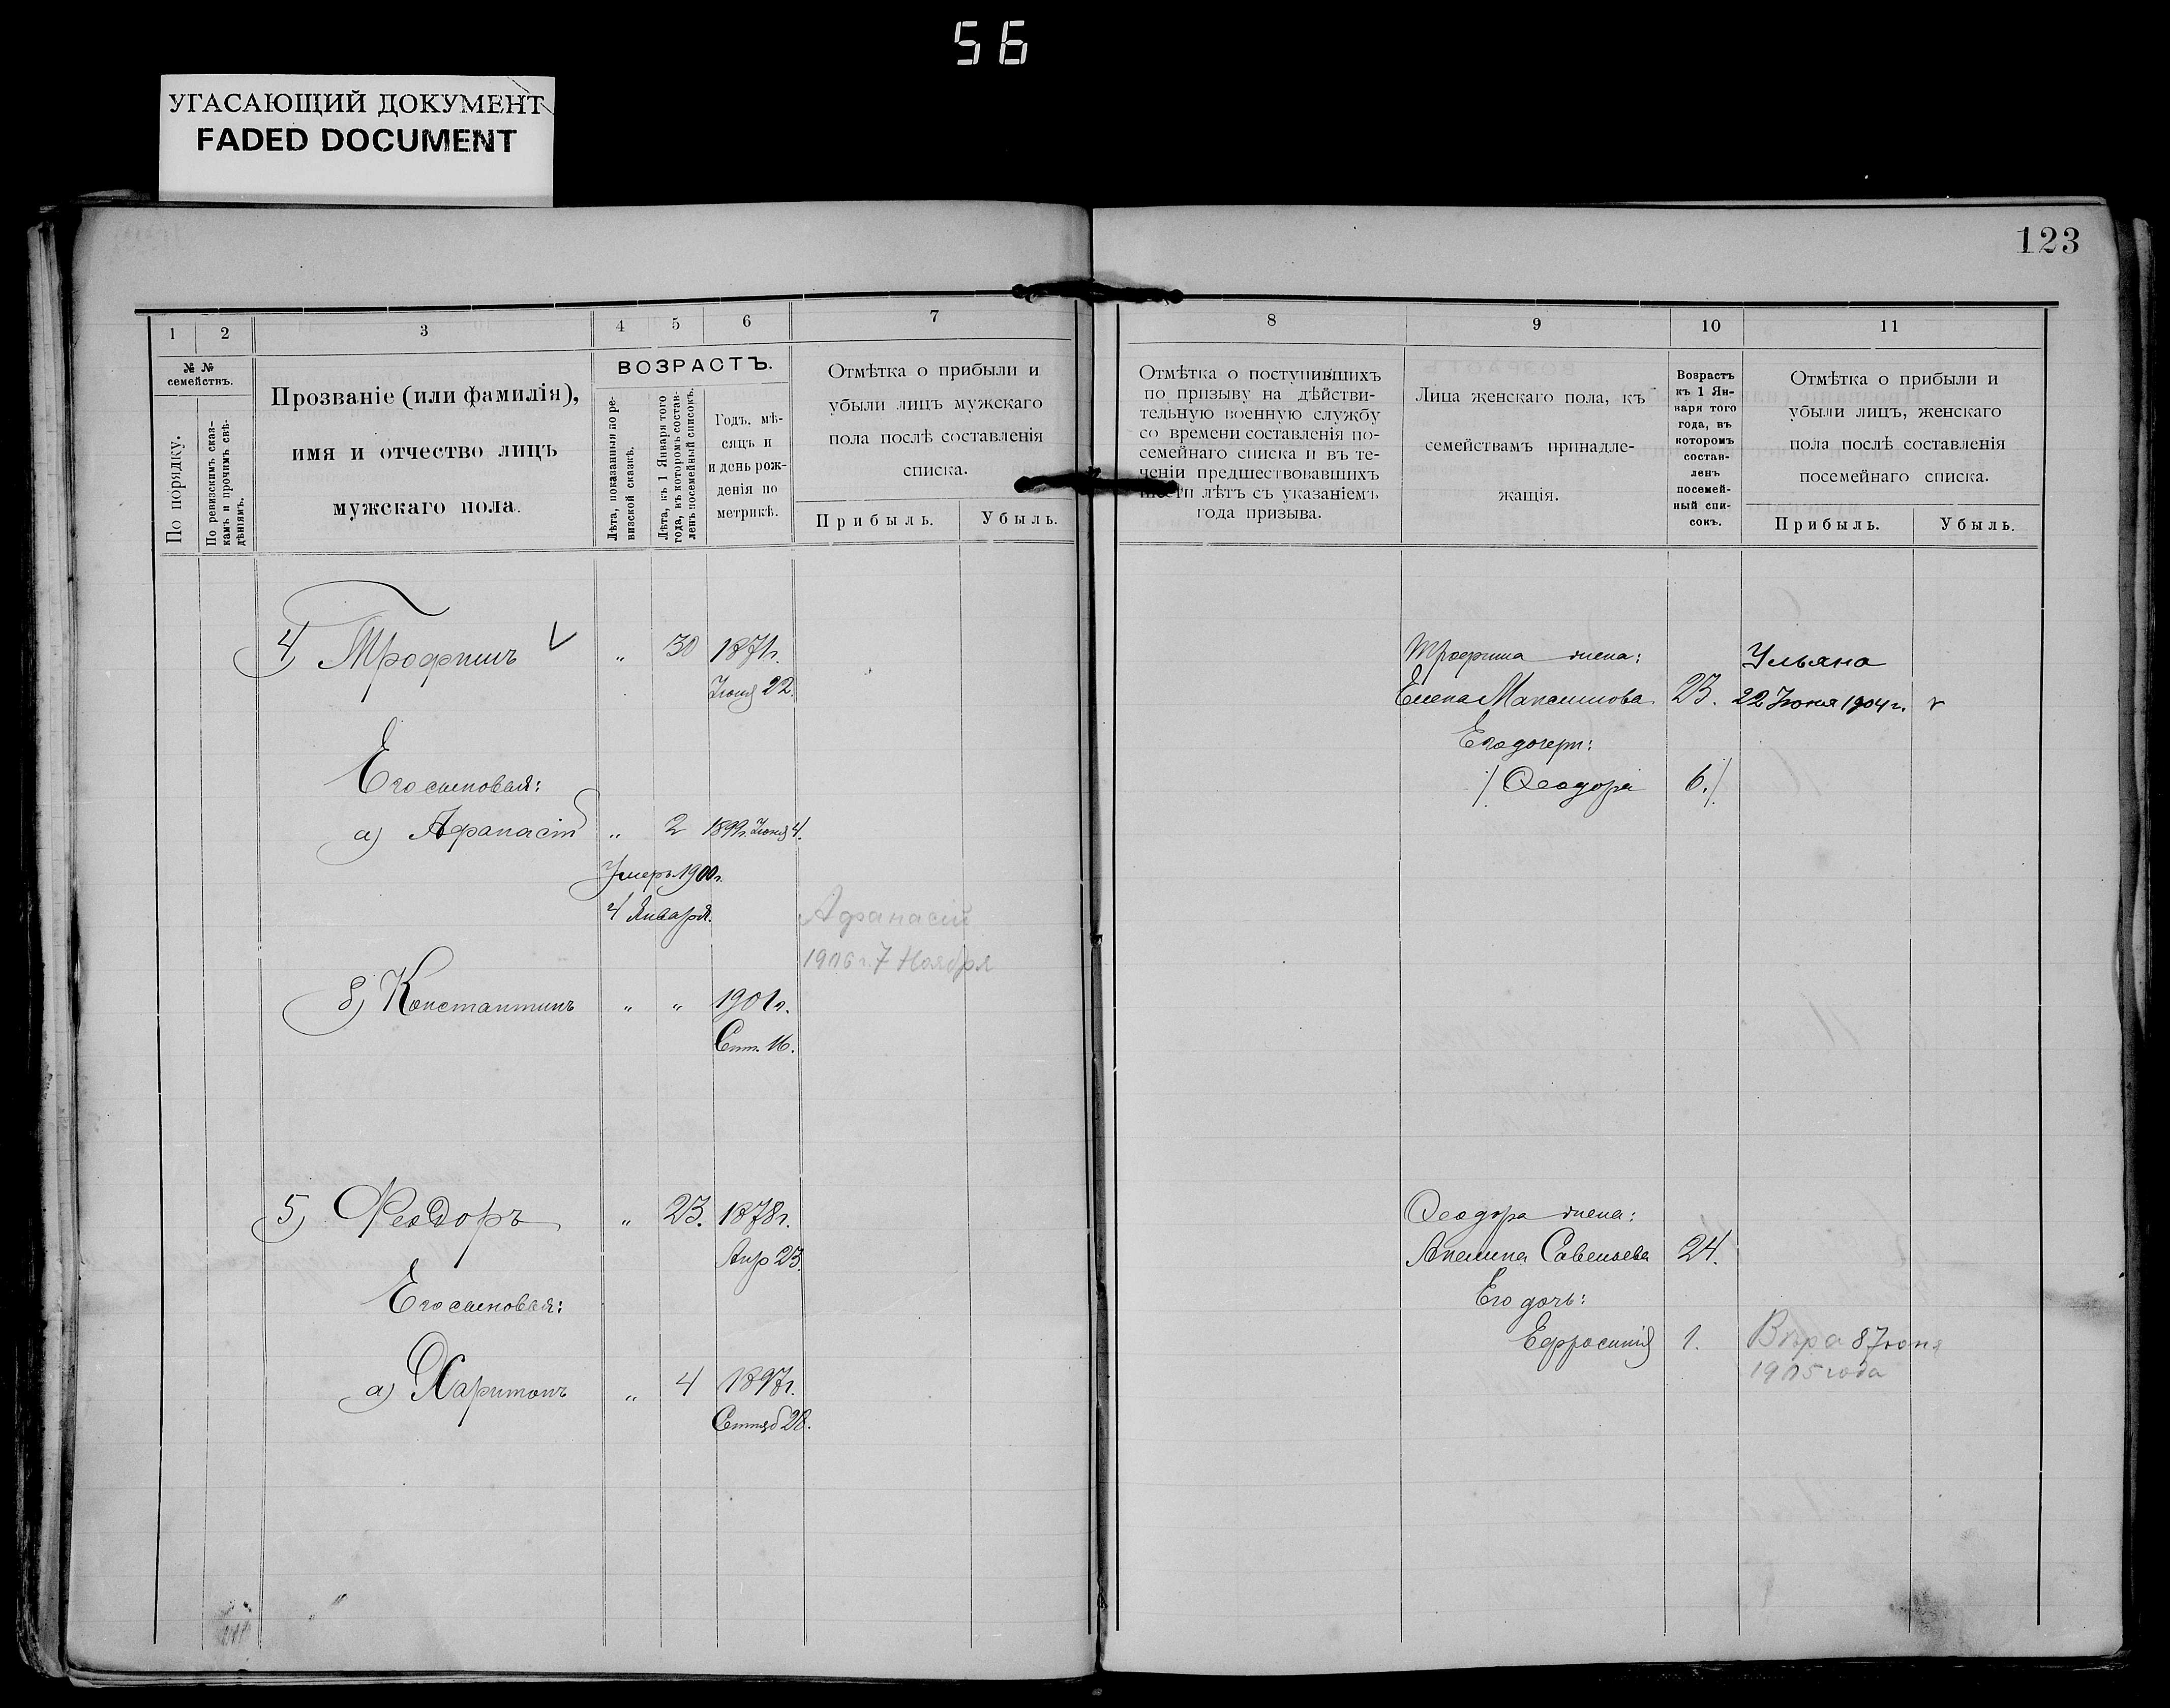 56
УГАСАЮЩИЙ ДОКУМЕНТ
FADED DOCUMENT
123
1 2 3 4 5 6 7
№ №
семействъ.
По порядку.
По ревизскимъ сказ-
камъ и прочимъ свѣ-
дѣніямъ.
Прозваніе (или фамилія),
имя и отчество лицъ
мужскаго пола.
ВОЗРАСТЪ.
Лѣта, показанныя по ре-
визской сказкѣ.
Лѣта, къ 1 Января того
года, въ которомъ состав-
ленъ посемейный списокъ.
Годъ, мѣ-
сяцъ и
и день рож-
денія по
метрикѣ.
Отмѣтка о прибыли и
убыли лицъ мужскаго
пола послѣ составленія
списка.
Прибыль. Убыль.
4) Трофимъ " 30 1871г.
Іюня 22.
Его сыновья:
а) Афанасій " 2 1899г. Іюня 4.
Умеръ 1900г.
4 Января.
Афанасій
1906 г. 7 Ноября
б) Константинъ " " 1901г.
Сент. 16.
5) Феодоръ " 23. 1878г.
Апр 23.
Его сыновья:
а) Харитонъ " 4 1897г.
Сентяб 28.
8 9 10 11
Отмѣтка о поступившихъ
по призыву на дѣйстви-
тельную военную службу
со времени составленія по-
семейнаго списка и въ те-
ченіи предшествовавшихъ
шести лѣтъ съ указаніемъ
года призыва.
Лица женскаго пола, къ
семействамъ принадле-
жащія.
Возрастъ
къ 1 Ян-
варя того
года, въ
которомъ
состав-
ленъ
посемей-
ный спи-
сокъ.
Отмѣтка о прибыли и
убыли лицъ, женскаго
пола послѣ составленія
посемейнаго списка.
Прибыль. Убыль.
Трофима жена: Ульяна
Елена Максимова 23. 22 Іюня 1904 г.
Его дочери:
Феодора 6.
Феодора жена:
Акелина Савельева 24.
Его дочь:
Ефросинія 1. Вѣра 8 Іюня
1905 года